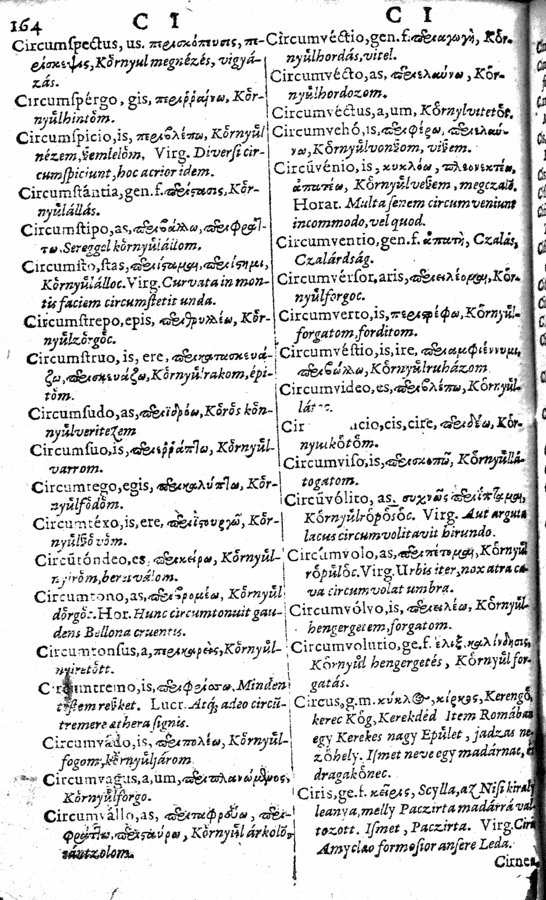 164 C I C I
Circumspectus, us. περισκόπυσις, πε-
ρίσκεψις, Kőrnyul megnézés, vigyá-
zás.
Circumspérgo, gis, περιῤῥαίνω, Kőr-
nyűlhintőm.
Circumspicio, is, περιβλέπω, Kőrnyűl
nézem, ſzemlelőm, Virg. Diversi cir-
cumspiciunt, hoc acrior idem.
Circumstántia, gen. f. περίστασις, Kőr-
nyűlállás.
Circumstipo, as,
Sereggel kőrnyűlállom.
Circumsto, stas, περιΐσταμαι, περιΐστημι,
Kőrnyűlálloc. Virg. Curvata in mon-
tis faciem circumstetit unda.
Circumstrepo, epis, περιθρυλλέω, Kőr-
nyűlzőrgőc.
Circumstruo, is, ere, περικατασκευά-
ζω, περισκευάζω, Kőrnyűl rakom, épi-
tőm.
Circumsudo, as, περιιδρόω, Kőrős kőn-
nyűlveriteſzem
Circumsuo, is, περιῤῥάπτω, Kőrnyűl-
varrom.
Circumtego, egis, περικαλύπτω, Kőr-
nyűlfődőm.
Circumtéxo, is, ere, Kőr-
nyűlſzővőm.
Circũtóndeo, es, περικείρω, Kőrnyűl-
nyirőm, berzuválom.
Circumtono, as, περιβρομέω, Kőrnyűl
dőrgőc. Hor. Hunc circumtonuit gau-
dens Bellona cruentis.
Circumtonsus, a, περικαρεὶς, Kőrnyűl-
nyiretőtt.
Circumtremo, is, Minden
reſzket. Lucr. Atq; adeo circũ-
tremere æthera signis.
Circumvádo, is, περιπολέω, Kőrnyűl-
fogom, kőrnyűljárom.
Circumvagus, a, um, περιπλανώμενος,
Kőrnyűlforgo.
Circumvállo, as, περιταφρεύω, περι-
Kőrnyűl árkolő,
sántzolom.
Circumvéctio, gen. f. περιαγωγὴ, Kőr-
nyűlhordás, vitel.
Circumvécto, as, περιελαύνω, Kőr-
nyűlhordozom.
Circumvéctus, a, um, Kőrnylvitetőt.
Circumvehó, is, περιφέρω, περιελαύ-
νω, Kőrnyűlvonſzom, viſzem.
Circũvénio, is, κυκλόω, πλεονεκτέω,
ἀπατέω, Kőrnyűlveſzem, megczalő.
Horat. Multa senem circumveniunt
incommodo, vel quod.
Circumventio, gen. f. ἀπατὴ, Czalás,
Czalárdság.
Circumvérsor, aris, περιειλέομαι, Kőr-
nyűlforgoc.
Circumverto, is, περιστρέφω, Kőrnyűl-
forgatom, forditom.
Circumvéstio, is, ire, περιαμφιέννυμι,
περιβάλλω, Kőrnyűlruházom.
Circumvideo, es, περιβλέπω, Kőrnyűl-
Cir acio, cis, cire, περιδέω, Kőr-
nyűlkőtőm.
Circumviso, is, περισκοπῶ, Kőrnyűllá-
togatom.
Circũvólito, as, συχνῶς περιΐπταμαι,
Kőrnyűlrőpősőc. Virg. Aut arguta
lacus circumvolitavit hirundo.
Circumvolo, as, περιπέτομαι, Kőrnyűl
rőpűlőc. Virg. Urbis iter, nox atra ca-
va circumvolat umbra.
Circumvólvo, is, περιειλέω, Kőrnyűl-
hengergetem, forgatom.
Circumvolutio, ge. f. ἕλιξ, καλίνδησις,
Kőrnyűl hengergetés, Kőrnyűl for-
gatás.
Circus, g. m. κύκλος, κίρκος, Kerengő,
kerec Kőg, Kerekdéd Item Romában
egy Kerekes nagy Epűlet, jadzas ne-
zőhely. Ismet neve egy madárnac, és
dragakőnec.
Ciris, ge. f. κεῖρις, Scylla, az Nisi kiraly
leanya, melly Paczirta madárrá val-
tozott. Ismet, Paczirta. Virg. Ciris
Amyclæo formosior ansere Ledæ.
Cirnea